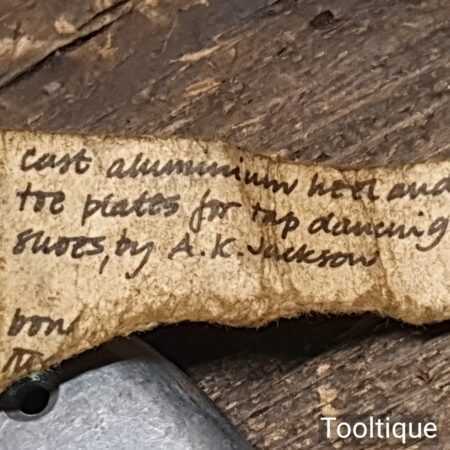 Cast aluminium heel and
toe plates for tap dancing
shoes, by A.K. Jackson
Tooltique